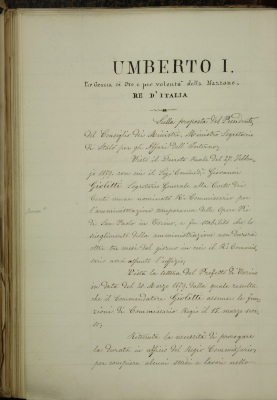 UMBERTO I.
Per Grazia di Dio e per volontà della Nazione,
RE D'ITALIA
Sulla proposta del Presidente
del Consiglio dei Ministri, Ministro Segretario
di Stato per gli Affari dell'Interno;
Visto il Decreto Reale del 27
1879, con cui il Giovanni
Giolitti, Segretario Generale alla Corte dei
Conti venne nominato R.º Commissario per
l'amministrazione temporanea delle Opere Pie
di San Paolo in Torino, e fu stabilito che lo
scioglimento della amministrazione non
oltre tre mesi dal giorno in cui il R.º Commis-
sario avrà assunto l'uffizio;
Vista la lettera del Prefetto di Torino
in data del 20 Marzo 1879, dalla quale risulta
che il Commendatore Giolitti assunse le fun-
zioni di Commissario Regio il 18 marzo
Ritenuta la necessità di prorogare
la durata in officio del Regio Commissario,
per compiere alcuni studi e lavori